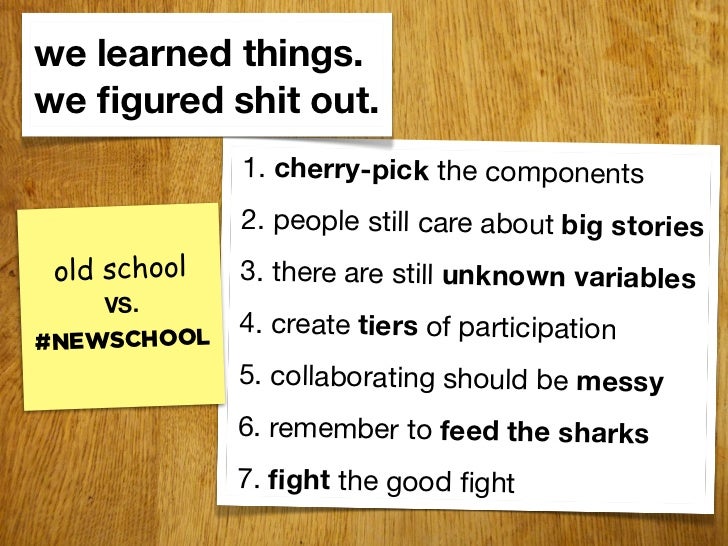 we learned things.
we figured shit out.
old school
vs.
#NEWSCHOOL
1. cherry-pick the components
2. people still care about big stories
3. there are still unknown variables
4. create tiers of participation
5. collaborating should be messy
6. remember to feed the sharks
7. fight the good fight